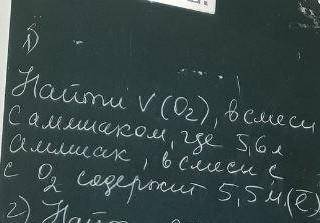 1)
Найти V(O₂), в смеси
с аммиаком, где 5,6 л
аммиак, в смеси с
с O₂ содержит 5,5 м.(ē)
2) Найт